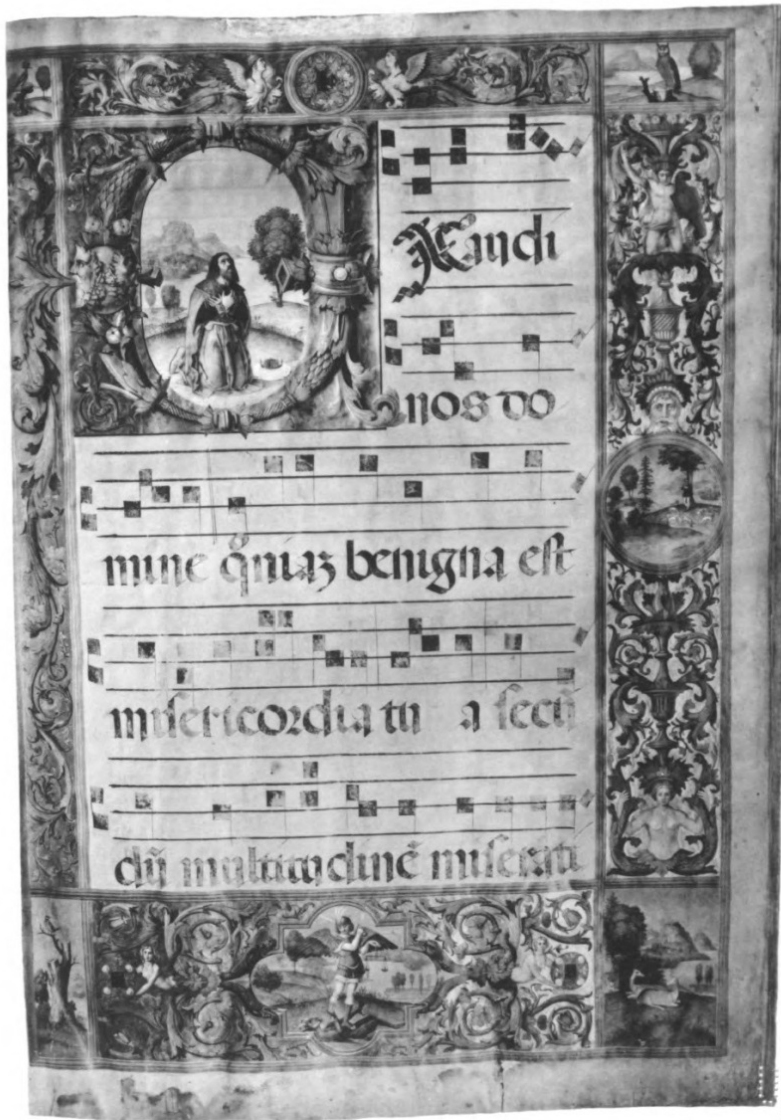 Exaudi
nos do
mine qm̄iaʒ benigna est
misericordia tu a secū
dū multitudinē miserati